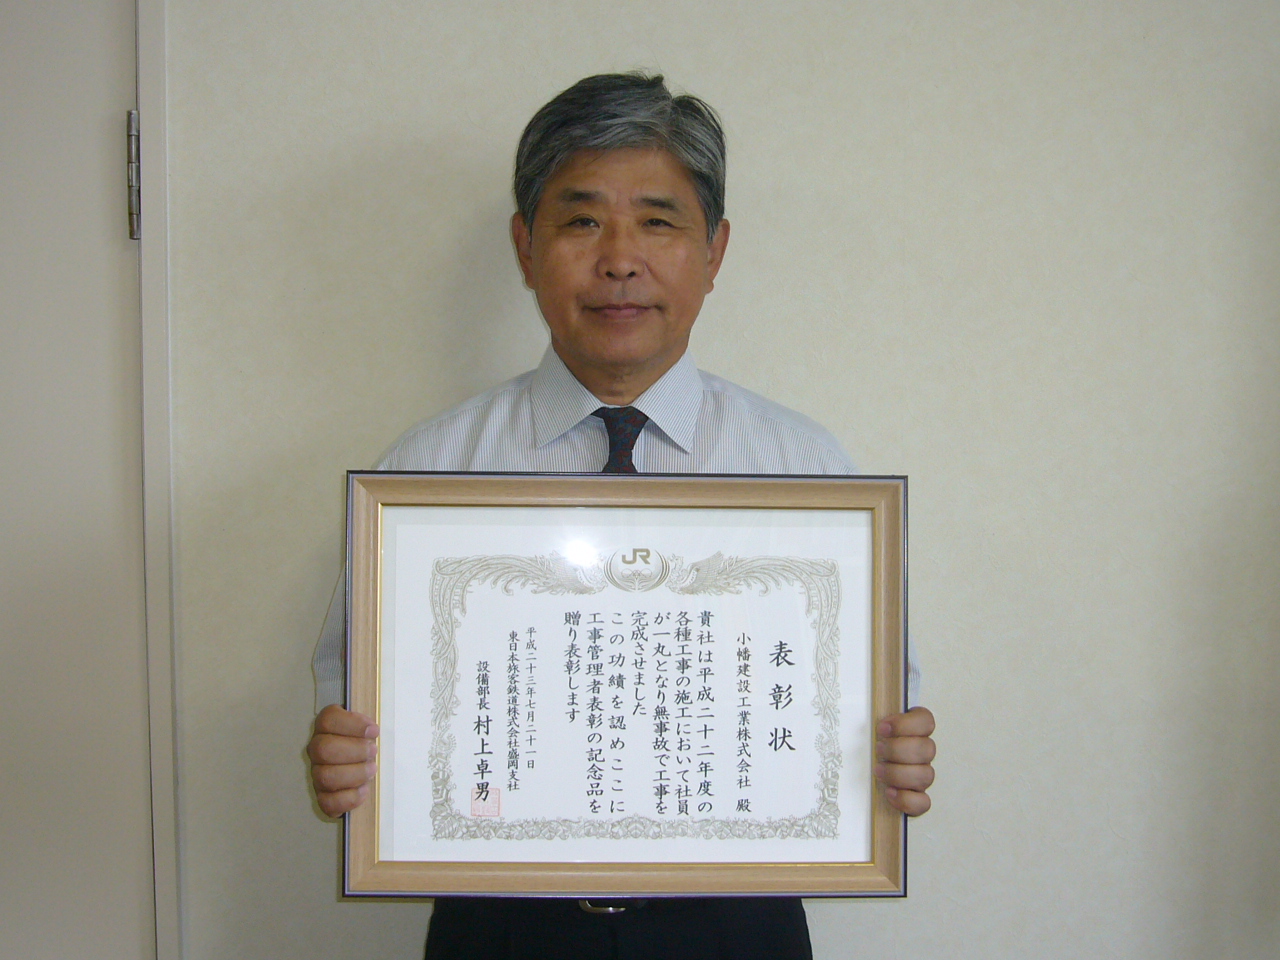 JR
表彰状
小幡建設工業株式会社 殿
貴社は平成二十二年度の
各種工事の施工において社員
が一丸となり無事故で工事を
完成させました
この功績を認めここに
工事管理者表彰の記念品を
贈り表彰します
平成二十三年七月二十一日
東日本旅客鉄道株式会社盛岡支社
設備部長 村上卓男